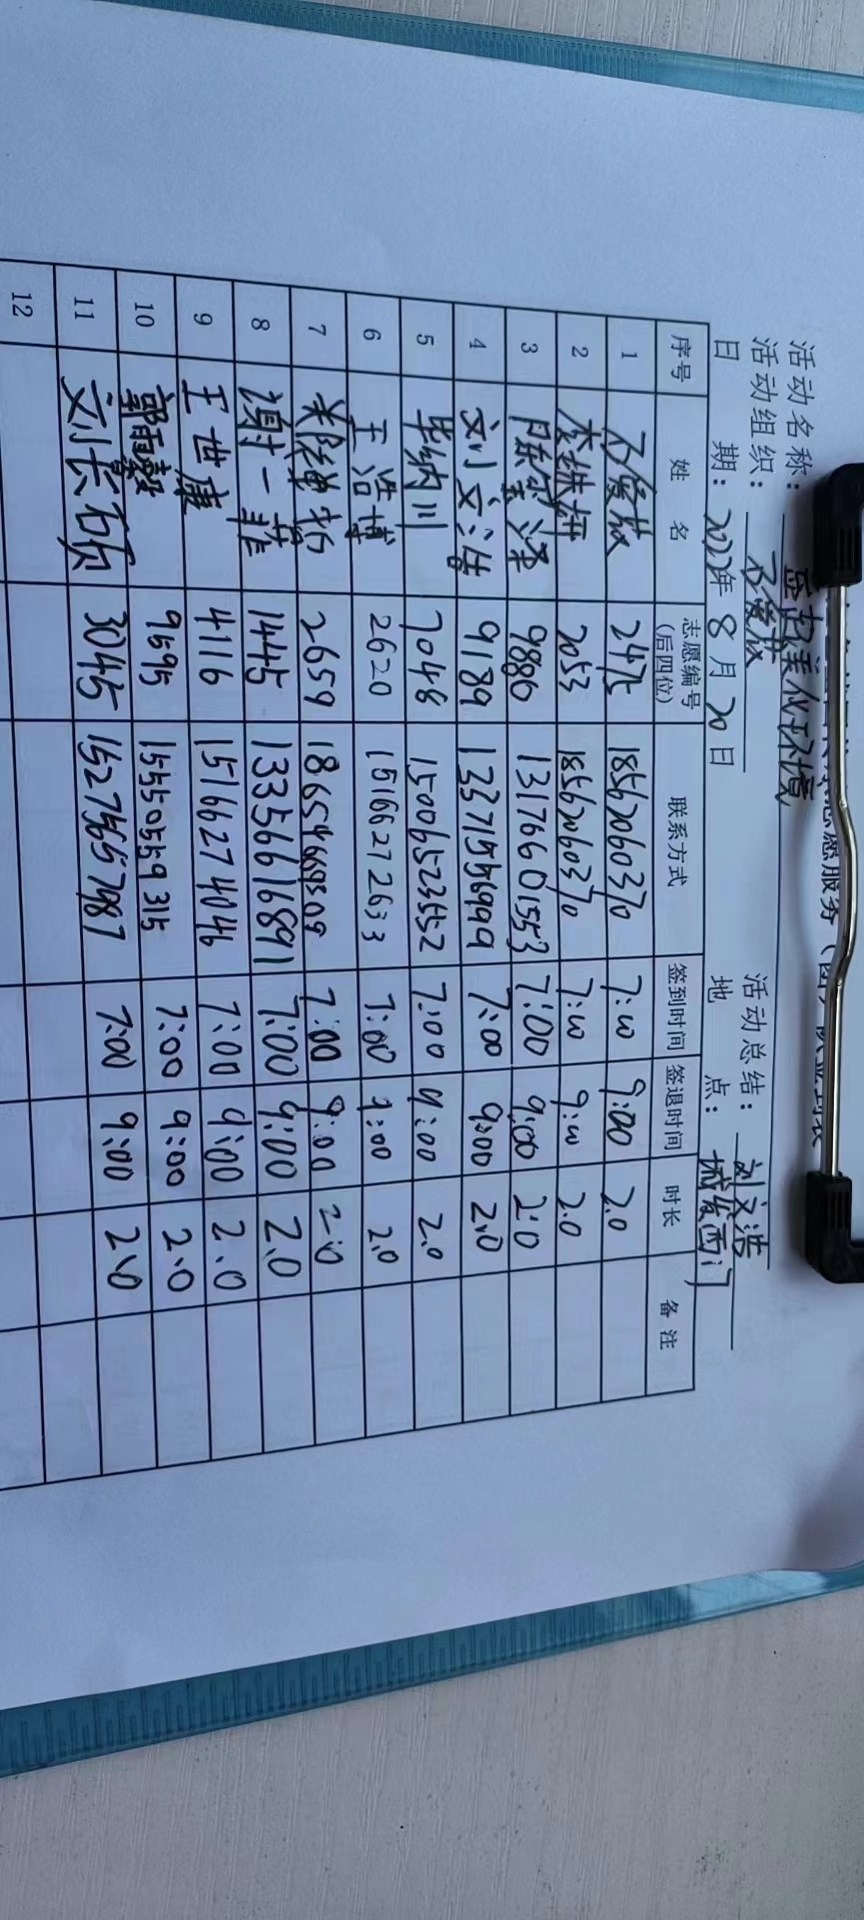 愿服务（团）队签到表
活动名称： 美化环境
活动组织： 活动总结： 刘文浩
日 期： 2022年 8 月 20 日 地 点： 城发西门
序号 姓 名 志愿编号（后四位） 联系方式 签到时间 签退时间 时长 备注
1 2475 18562060370 7:00 9:00 2.0
2 2053 18562060370 7:00 9:00 2.0
3 9886 13176601553 7:00 9:00 2.0
4 刘文浩 9189 13371556999 7:00 9:00 2.0
5 毕纳川 7048 15006523552 7:00 9:00 2.0
6 王浩博 2620 15166272633 7:00 9:00 2.0
7 2659 7:00 9:00 2.0
8 谢一菲 1445 13356616891 7:00 9:00 2.0
9 王世康 4116 15166274046 7:00 9:00 2.0
10 9595 15550559315 7:00 9:00 2.0
11 刘长硕 3045 15275657987 7:00 9:00 2.0
12